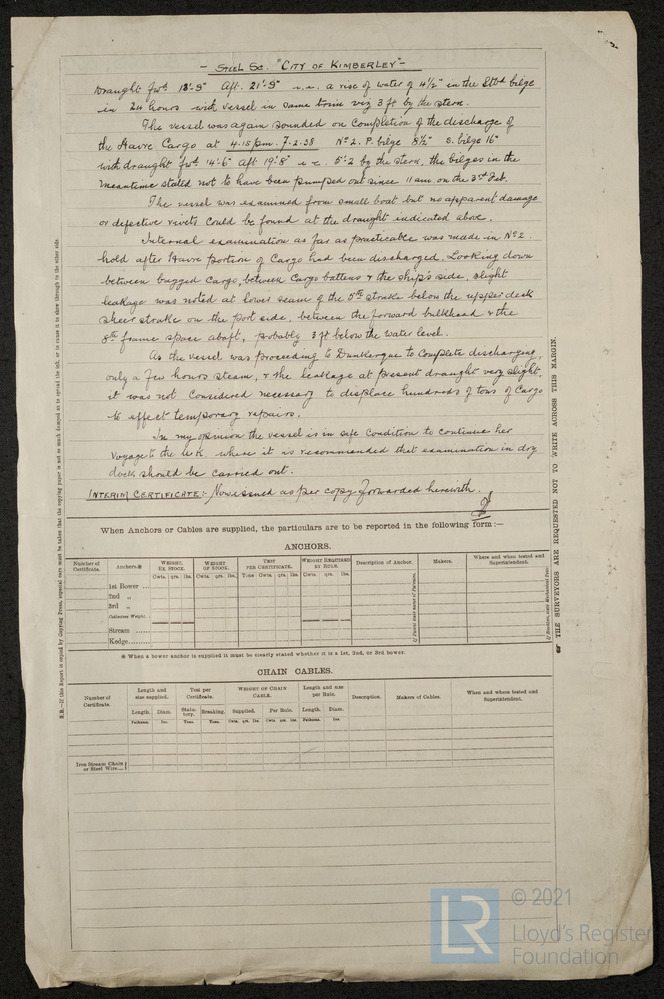 - STEEL SC. "CITY OF KIMBERLEY" -
Draught fwd 18'-9" Aft. 21'-9" i.e. a rise of water of 4½" in the Stbd bilge
in 24 hours with vessel in same trim viz 3 ft by the stern.
The vessel was again sounded on Completion of the discharge of
the Havre Cargo at 4.15 pm. 7.2.38 Nº 2. P. bilge 8½" S. bilge 16"
with draught fwd 14'-6" aft 19'-8" i.e. 5'-2 by the stern, the bilges in the
meantime stated not to have been pumped out since 11 am. on the 3rd Feb.
The vessel was examined from small boat but no apparent damage
or defective rivets could be found at the draught indicated above.
Internal examination as far as practicable was made in Nº 2.
hold after Havre portion of Cargo had been discharged. Looking down
between bagged Cargo, between Cargo battens & the ship's side, slight
leakage was noted at lower seam of the 5th strake below the upper deck
sheer strake on the port side, between the forward bulkhead & the
8th frame space abaft, probably 3 ft below the water level.
As the vessel was proceeding to Dunkerque to Complete discharging,
only a few hours steam, & the leakage at present draught very slight,
it was not Considered necessary to displace hundreds of tons of Cargo
to effect temporary repairs.
In my opinion the vessel is in safe Condition to continue her
voyage to the U.K. where it is recommended that examination in dry
dock should be carried out.
INTERIM CERTIFICATE:- Now issued as per copy forwarded herewith.
When Anchors or Cables are supplied, the particulars are to be reported in the following form:—
ANCHORS.
Number of Certificate. Anchors.* WEIGHT. EX STOCK. WEIGHT OF STOCK. TEST PER CERTIFICATE. WEIGHT REQUIRED BY RULE. Description of Anchor. Makers. Where and when tested and Superintendent.
Cwts. qrs. lbs. Cwts. qrs. lbs. Tons Cwts. qrs. lbs. Cwts. qrs. lbs.
1st Bower ...
2nd „
3rd „
Collective Weight.
Stream .....
Kedge........
* When a bower anchor is supplied it must be clearly stated whether it is a 1st, 2nd, or 3rd bower.
CHAIN CABLES.
Number of Certificate. Length and size supplied. Test per Certificate. WEIGHT OF CHAIN CABLE. Length and size per Rule. Description. Makers of Cables. When and where tested and Superintendent.
Length. Diam. Statutory. Breaking. Supplied. Per Rule. Length. Diam.
Fathoms. Ins. Tons. Tons. Cwts. qrs. lbs. Cwts. qrs. lbs. Fathoms. Ins.
Iron Stream Chain or Steel Wire
N.B.—If this Report is copied by Copying Press, especial care must be taken that the copying paper is not so much damped as to spread the ink, or to cause it to show through to the other side.
THE SURVEYORS ARE REQUESTED NOT TO WRITE ACROSS THIS MARGIN.
LR
© 2021
Lloyd's Register
Foundation